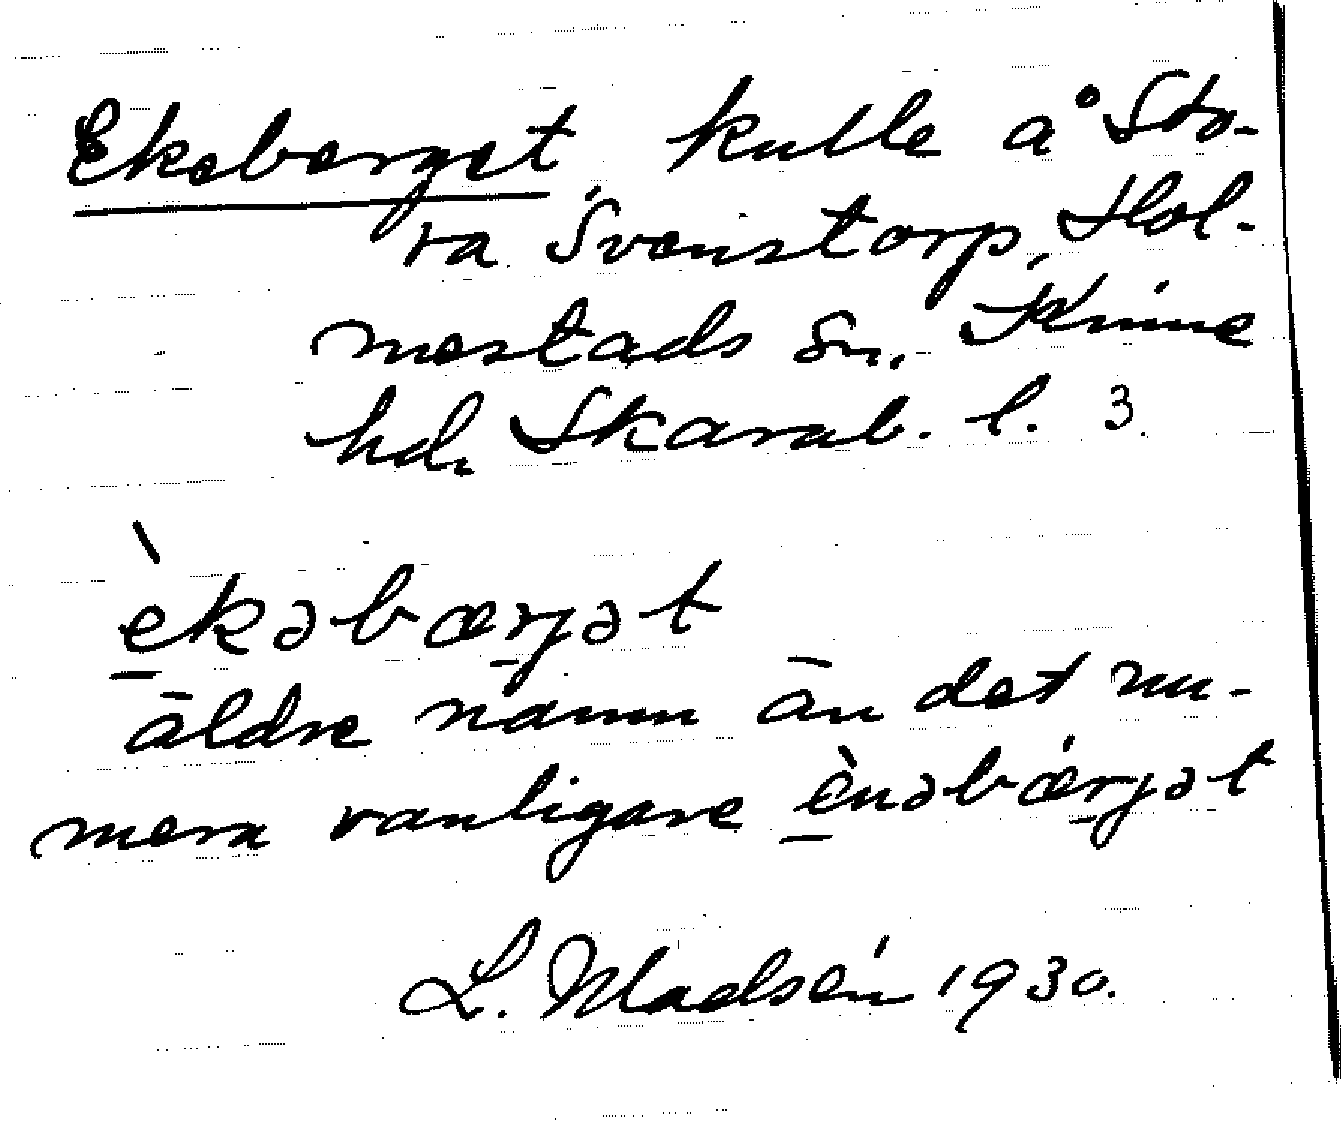 Ekeberget, kulle å Sto-
ra Svenstorp, Hol-
mestads sn, Kinne
hd, Skarab. l. 3.
èkəbærjət
äldre namn än det nu-
mera vanligare ènəbǽrjət
L. Madsén 1930.